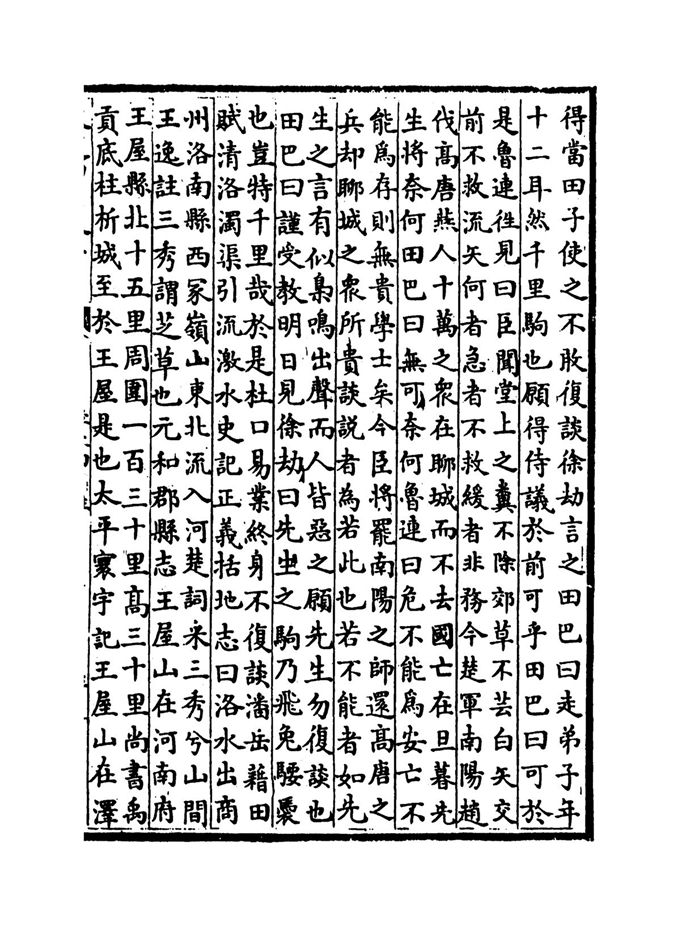 得當田子使之不敢復談徐劫言之田巴曰走弟子年
十二耳然千里駒也願得侍議於前可乎田巴曰可於
是魯連徃見曰臣聞堂上之糞不除郊草不芸白矢交
前不救流矢何者急者不救緩者非務今楚軍南陽趙
伐髙唐燕人十萬之衆在聊城而不去國亡在旦暮先
生將奈何田巴曰無可奈何魯連曰危不能爲安亡不
能爲存則無貴學士矣今臣將罷南陽之師還髙唐之
兵却聊城之衆所貴談説者為若此也若不能者如先
生之言有似梟鳴出聲而人皆惡之願先生勿復談也
田巴曰謹受教明日見徐劫曰先生之駒乃飛兔騕褭
也豈特千里哉於是杜口易業終身不復談潘岳藉田
賦清洛濁渠引流激水史記正義括地志曰洛水出商
州洛南縣西冢嶺山東北流入河楚詞采三秀兮山間
王逸註三秀謂芝草也元和郡縣志王屋山在河南府
王屋縣北十五里周圍一百三十里髙三十里尚書禹
貢底柱析城至於王屋是也太平寰宇記王屋山在澤